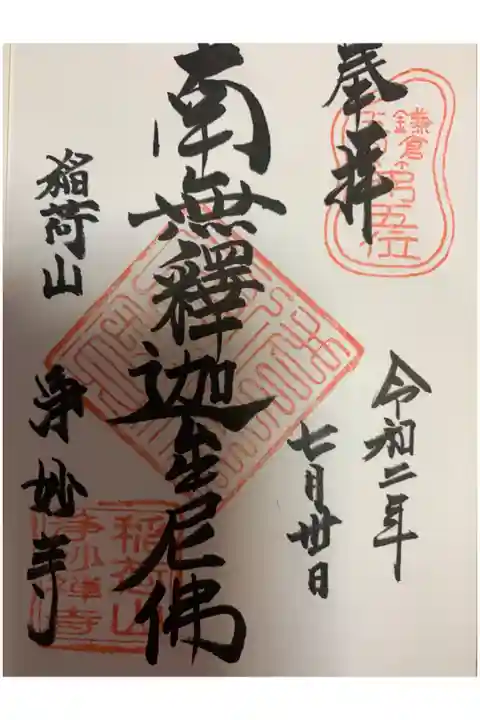 奉拝
鎌倉
第五位
令和二年
七月卅日
南無釋迦牟尼佛
稲荷山
浄妙寺
稲荷山
浄妙禅寺